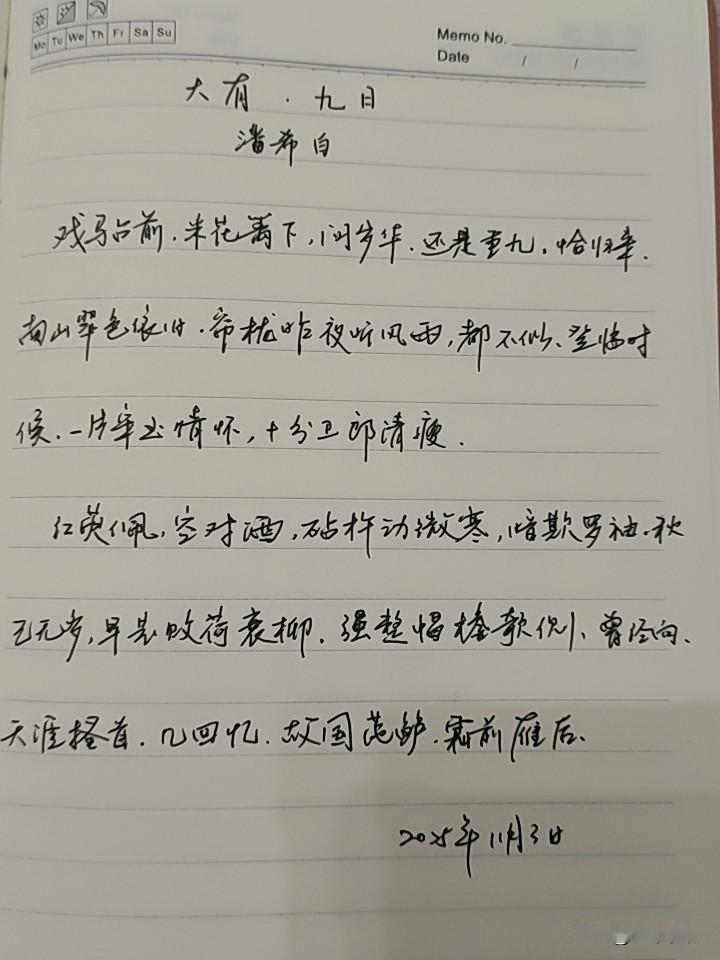 Mo Tu We Th Fr Sa Su
Memo No.
Date / /
大有·九日
潘希白
戏马台前,采花篱下,问岁华,还是重九,恰归来,
南山翠色依旧,帘栊昨夜听风雨,都不似、登临时
候,一片宋玉情怀,十分卫郎清瘦.
红萸佩,空对酒,砧杵动微寒,暗欺罗袖,秋
已无多,早是败荷衰柳.强整帽檐欹侧、曾经向、
天涯搔首,几回忆,故国莼鲈,霜前雁后.
2025年11月3日